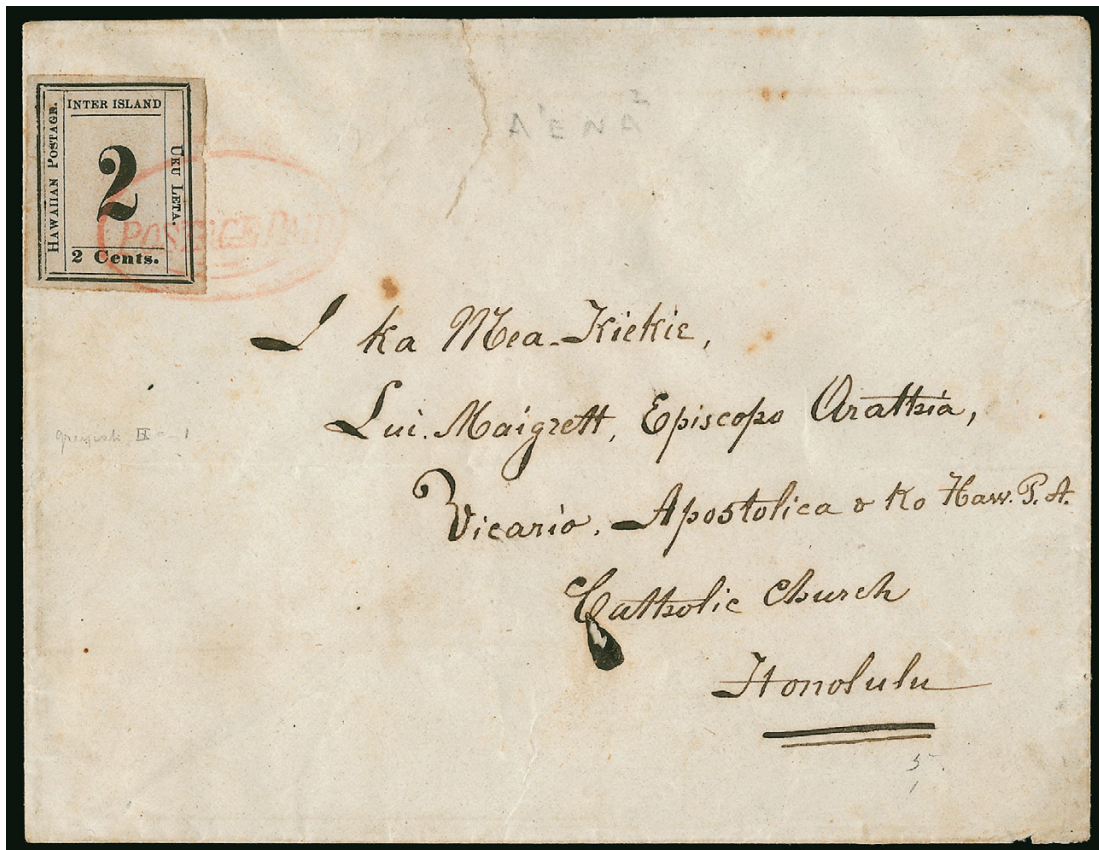 INTER ISLAND
HAWAIIAN POSTAGE.
2
UKU LETA.
2 Cents.
POSTAGE PAID
A'ENA 2
I ka Mea-Kiekie,
Lui. Maigrett, Episcopo Arathia,
Vicario. Apostolica o Ko Haw. P. A.
Catholic Church
Honolulu
5